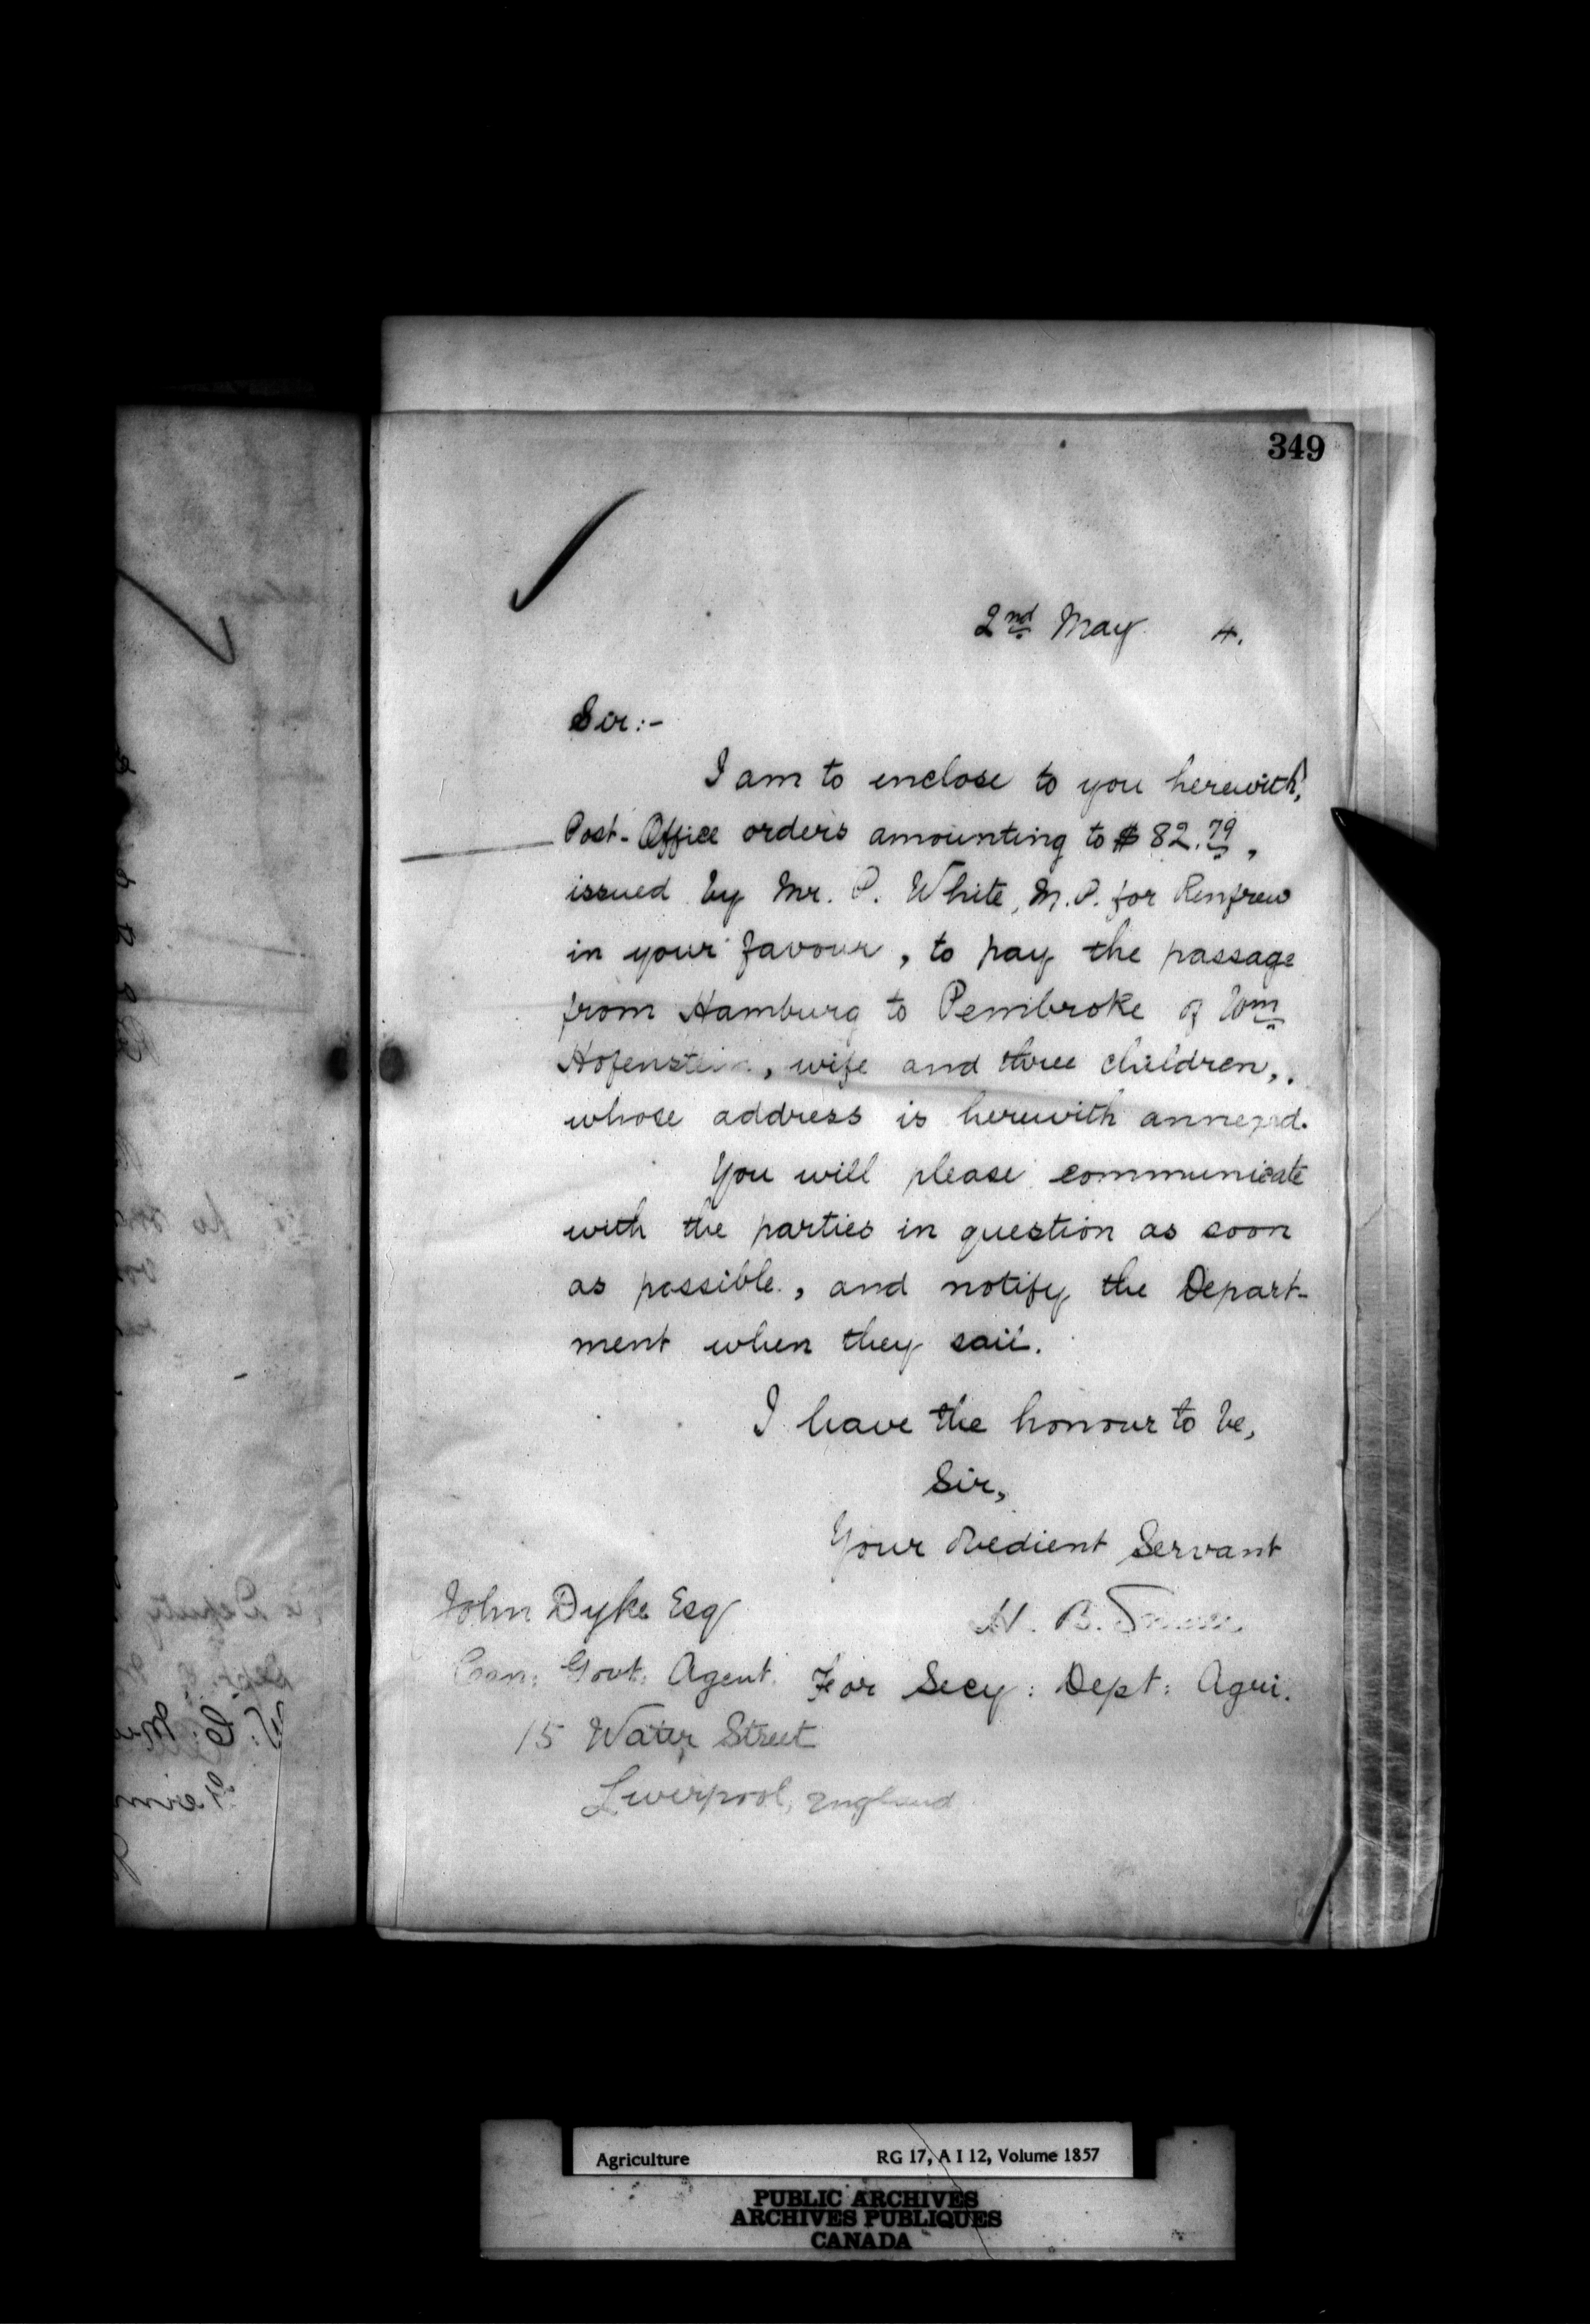 349
2nd May 4.
Sir:-
I am to enclose to you herewith,
Post-Office orders amounting to $82.79,
issued by Mr. P. White, M.P. for Renfrew
in your favour, to pay the passage
from Hamburg to Pembroke of Wm
Hofenstein, wife and three children,
whose address is herewith annexed.
You will please communicate
with the parties in question as soon
as possible, and notify the Depart-
ment when they sail.
I have the honour to be,
Sir,
Your obedient Servant
John Dyke Esq
H. B.
Can: Govt: Agent. For Secy: Dept: Agri.
15 Water Street
Liverpool, England
Agriculture RG 17, A I 12, Volume 1857
PUBLIC ARCHIVES
ARCHIVES PUBLIQUES
CANADA